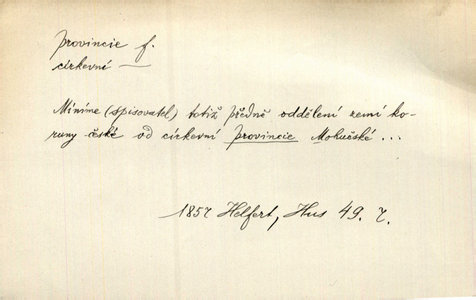 provincie f.
církevní —
Míníme (spisovatel) totiž předně oddělení zemí ko-
runy české od církevní provincie Mohučské ...
1857 Helfert, Hus 49. 7.